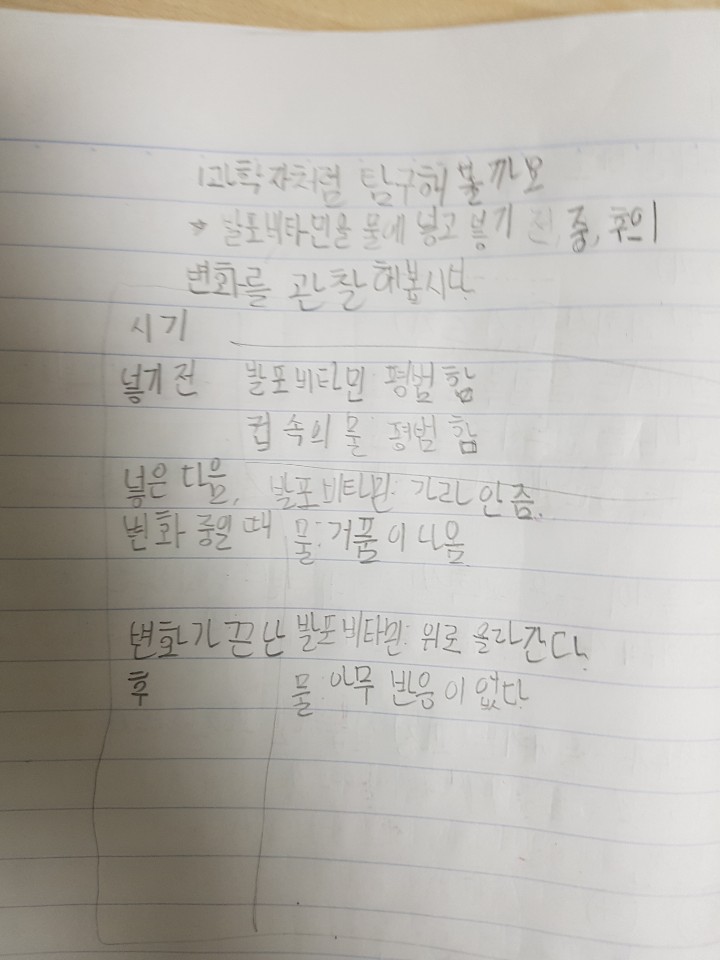 1과학자처럼 탐구해 볼까요
* 발포비타민을 물에 넣고 넣기 전, 중, 후의
변화를 관찰해봅시다.
시기
넣기 전 발포비타민: 평범함
컵 속의 물: 평범함
넣은 다음, 발포비타민: 가라안즘.
변화 중일 때 물: 거품이 나옴
변화가 끈난 발포비타민: 위로 올라간다.
후 물: 아무 반응이 없다